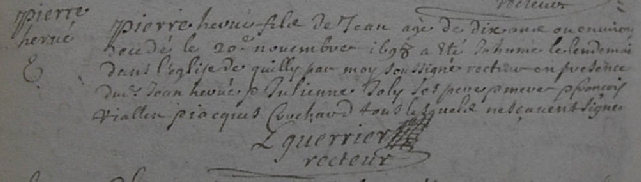 recteur
pierre
hervé
Pierre hervé fils de Jean agé de dix ans ou environ
decedé le 20e novembre 1698 a été Inhumé le lendemain
dans l'église de quilly par moy soussigné recteur en presence
dud. Jean hervé & Julienne Joly ses pere & mere & françois
Viallen & jacques Couchard tous lesquels ne sçauent signer
L guerrier
recteur